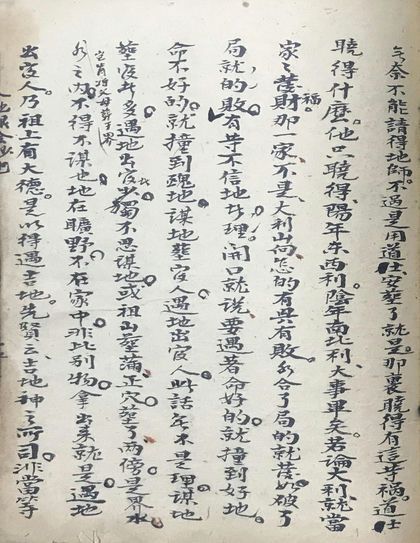 亏奈不能請得地師。不過是用道士安塟了就是。那裏曉得有這等禍。道士
曉得什麽。他只曉得陽年東西利。陰年南北利。大事畢矣。若論大利就當
家〻發財福。那一家不是大利。為怎的有興有敗。合了局的就發。破了
局就的敗。有等不信地此理。開口就說要遇著命好的。就撞到好地。
命不好的。就撞到醜地。謀地塟官人。遇地出官人。此話年不是理。謀地
塟後者多。遇地出官少。獨不思謀地或祖山塟蒲正穴塟了兩傍是界水
豈肯將父母塟于界
水之內。不得不謀也。地在曠野。不在家中。非比別物。拿出來就是。遇地
出官人。乃祖上有大德。是以得遇吉地。先賢云。吉地神之所司。非當等